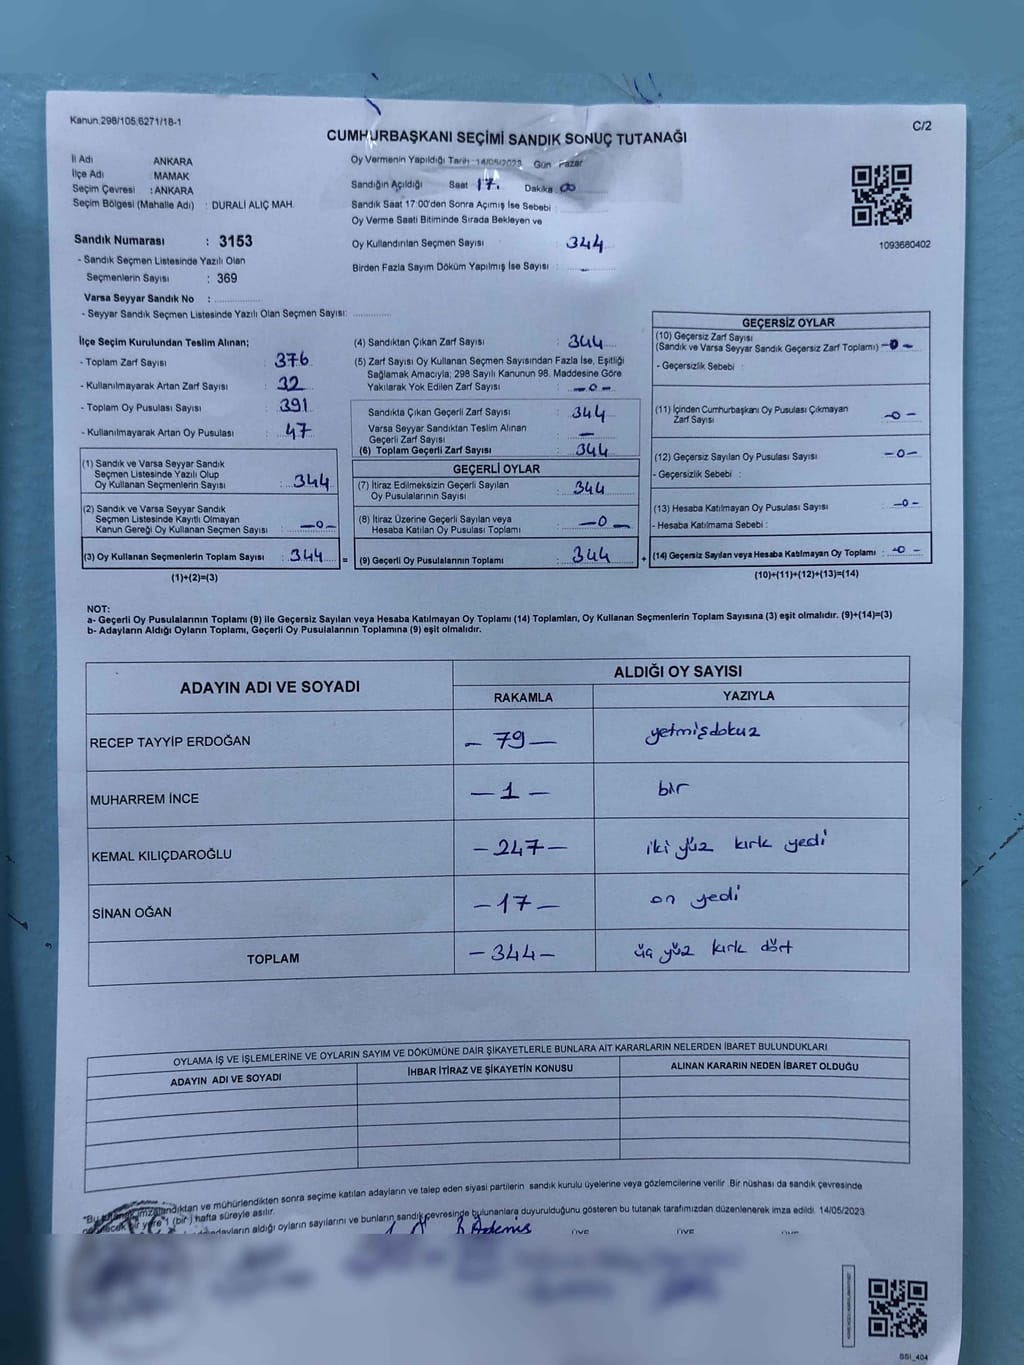 Kanun.298/105.6271/18-1
C/2
CUMHURBAŞKANI SEÇİMİ SANDIK SONUÇ TUTANAĞI
İl Adı ANKARA
İlçe Adı MAMAK
Seçim Çevresi : ANKARA
Seçim Bölgesi (Mahalle Adı) : DURALİ ALIÇ MAH.
Sandık Numarası : 3153
- Sandık Seçmen Listesinde Yazılı Olan
Seçmenlerin Sayısı : 369
Varsa Seyyar Sandık No :
- Seyyar Sandık Seçmen Listesinde Yazılı Olan Seçmen Sayısı:
Oy Vermenin Yapıldığı Tarih : 14/05/2023 Gün : Pazar
Sandığın Açıldığı Saat 17. Dakika : 00
Sandık Saat 17:00'den Sonra Açımış İse Sebebi :
Oy Verme Saati Bitiminde Sırada Bekleyen ve
Oy Kullandırılan Seçmen Sayısı : 344
Birden Fazla Sayım Döküm Yapılmış İse Sayısı : -
1093680402
İlçe Seçim Kurulundan Teslim Alınan;
- Toplam Zarf Sayısı : 376
- Kullanılmayarak Artan Zarf Sayısı : 32
- Toplam Oy Pusulası Sayısı : 391
- Kullanılmayarak Artan Oy Pusulası : 47
(1) Sandık ve Varsa Seyyar Sandık
Seçmen Listesinde Yazılı Olup
Oy Kullanan Seçmenlerin Sayısı : 344
(2) Sandık ve Varsa Seyyar Sandık
Seçmen Listesinde Kayıtlı Olmayan
Kanun Gereği Oy Kullanan Seçmen Sayısı : -0-
(3) Oy Kullanan Seçmenlerin Toplam Sayısı : 344 =
(1)+(2)=(3)
(4) Sandıktan Çıkan Zarf Sayısı : 344
(5) Zarf Sayısı Oy Kullanan Seçmen Sayısından Fazla İse, Eşitliği
Sağlamak Amacıyla; 298 Sayılı Kanunun 98. Maddesine Göre
Yakılarak Yok Edilen Zarf Sayısı : -0-
Sandıkta Çıkan Geçerli Zarf Sayısı : 344
Varsa Seyyar Sandıktan Teslim Alınan
Geçerli Zarf Sayısı : -
(6) Toplam Geçerli Zarf Sayısı : 344
GEÇERLİ OYLAR
(7) İtiraz Edilmeksizin Geçerli Sayılan
Oy Pusulalarının Sayısı : 344
(8) İtiraz Üzerine Geçerli Sayılan veya
Hesaba Katılan Oy Pusulası Toplamı : -0-
(9) Geçerli Oy Pusulalarının Toplamı : 344 +
GEÇERSİZ OYLAR
(10) Geçersiz Zarf Sayısı
(Sandık ve Varsa Seyyar Sandık Geçersiz Zarf Toplamı) -0-
- Geçersizlik Sebebi :
(11) İçinden Cumhurbaşkanı Oy Pusulası Çıkmayan
Zarf Sayısı : -0-
(12) Geçersiz Sayılan Oy Pusulası Sayısı : -0-
- Geçersizlik Sebebi :
(13) Hesaba Katılmayan Oy Pusulası Sayısı : -0-
- Hesaba Katılmama Sebebi :
(14) Geçersiz Sayılan veya Hesaba Katılmayan Oy Toplamı : -0-
(10)+(11)+(12)+(13)=(14)
NOT:
a- Geçerli Oy Pusulalarının Toplamı (9) ile Geçersiz Sayılan veya Hesaba Katılmayan Oy Toplamı (14) Toplamları, Oy Kullanan Seçmenlerin Toplam Sayısına (3) eşit olmalıdır. (9)+(14)=(3)
b- Adayların Aldığı Oyların Toplamı, Geçerli Oy Pusulalarının Toplamına (9) eşit olmalıdır.
ADAYIN ADI VE SOYADI
ALDIĞI OY SAYISI
RAKAMLA YAZIYLA
RECEP TAYYİP ERDOĞAN -79- yetmişdokuz
MUHARREM İNCE -1- bir
KEMAL KILIÇDAROĞLU -247- iki yüz kırk yedi
SİNAN OĞAN -17- on yedi
TOPLAM -344- üç yüz kırk dört
OYLAMA İŞ VE İŞLEMLERİNE VE OYLARIN SAYIM VE DÖKÜMÜNE DAİR ŞİKAYETLERLE BUNLARA AİT KARARLARIN NELERDEN İBARET BULUNDUKLARI
ADAYIN ADI VE SOYADI İHBAR İTİRAZ VE ŞİKAYETİN KONUSU ALINAN KARARIN NEDEN İBARET OLDUĞU
imzalandıktan ve mühürlendikten sonra seçime katılan adayların ve talep eden siyasi partilerin sandık kurulu üyelerine veya gözlemcilerine verilir. Bir nüshası da sandık çevresinde
bir yere 1 (bir) hafta süreyle asılır.
adayların aldığı oyların sayılarını ve bunların sandık çevresinde bulunanlara duyurulduğunu gösteren bu tutanak tarafımızdan düzenlenerek imza edildi. 14/05/2023
ÜYE ÜYE ÜYE
SSİ_404